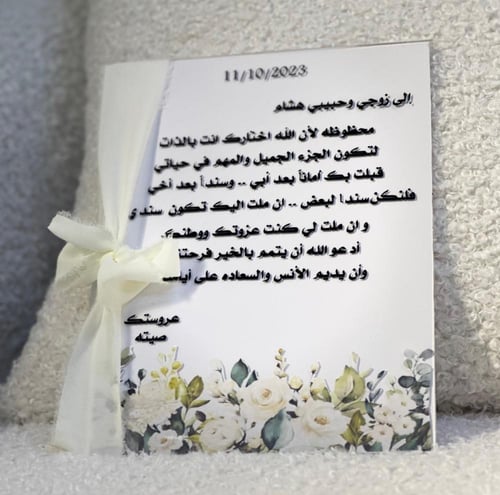 11/10/2023
الى زوجي وحبيبي هشام
محظوظه لأن الله اختارك انت بالذات
لتكون الجزء الجميل والمهم في حياتي
قبلت بك اماناً بعد أبي .. وسنداً بعد أخي
فلنكن سنداً لبعض .. ان ملت اليك تكون سندي
و ان ملت لي كنت عزوتك ووطنك
أدعو الله أن يتمم بالخير فرحتنا
وأن يديم الأنس والسعاده على
عروستك
صيته